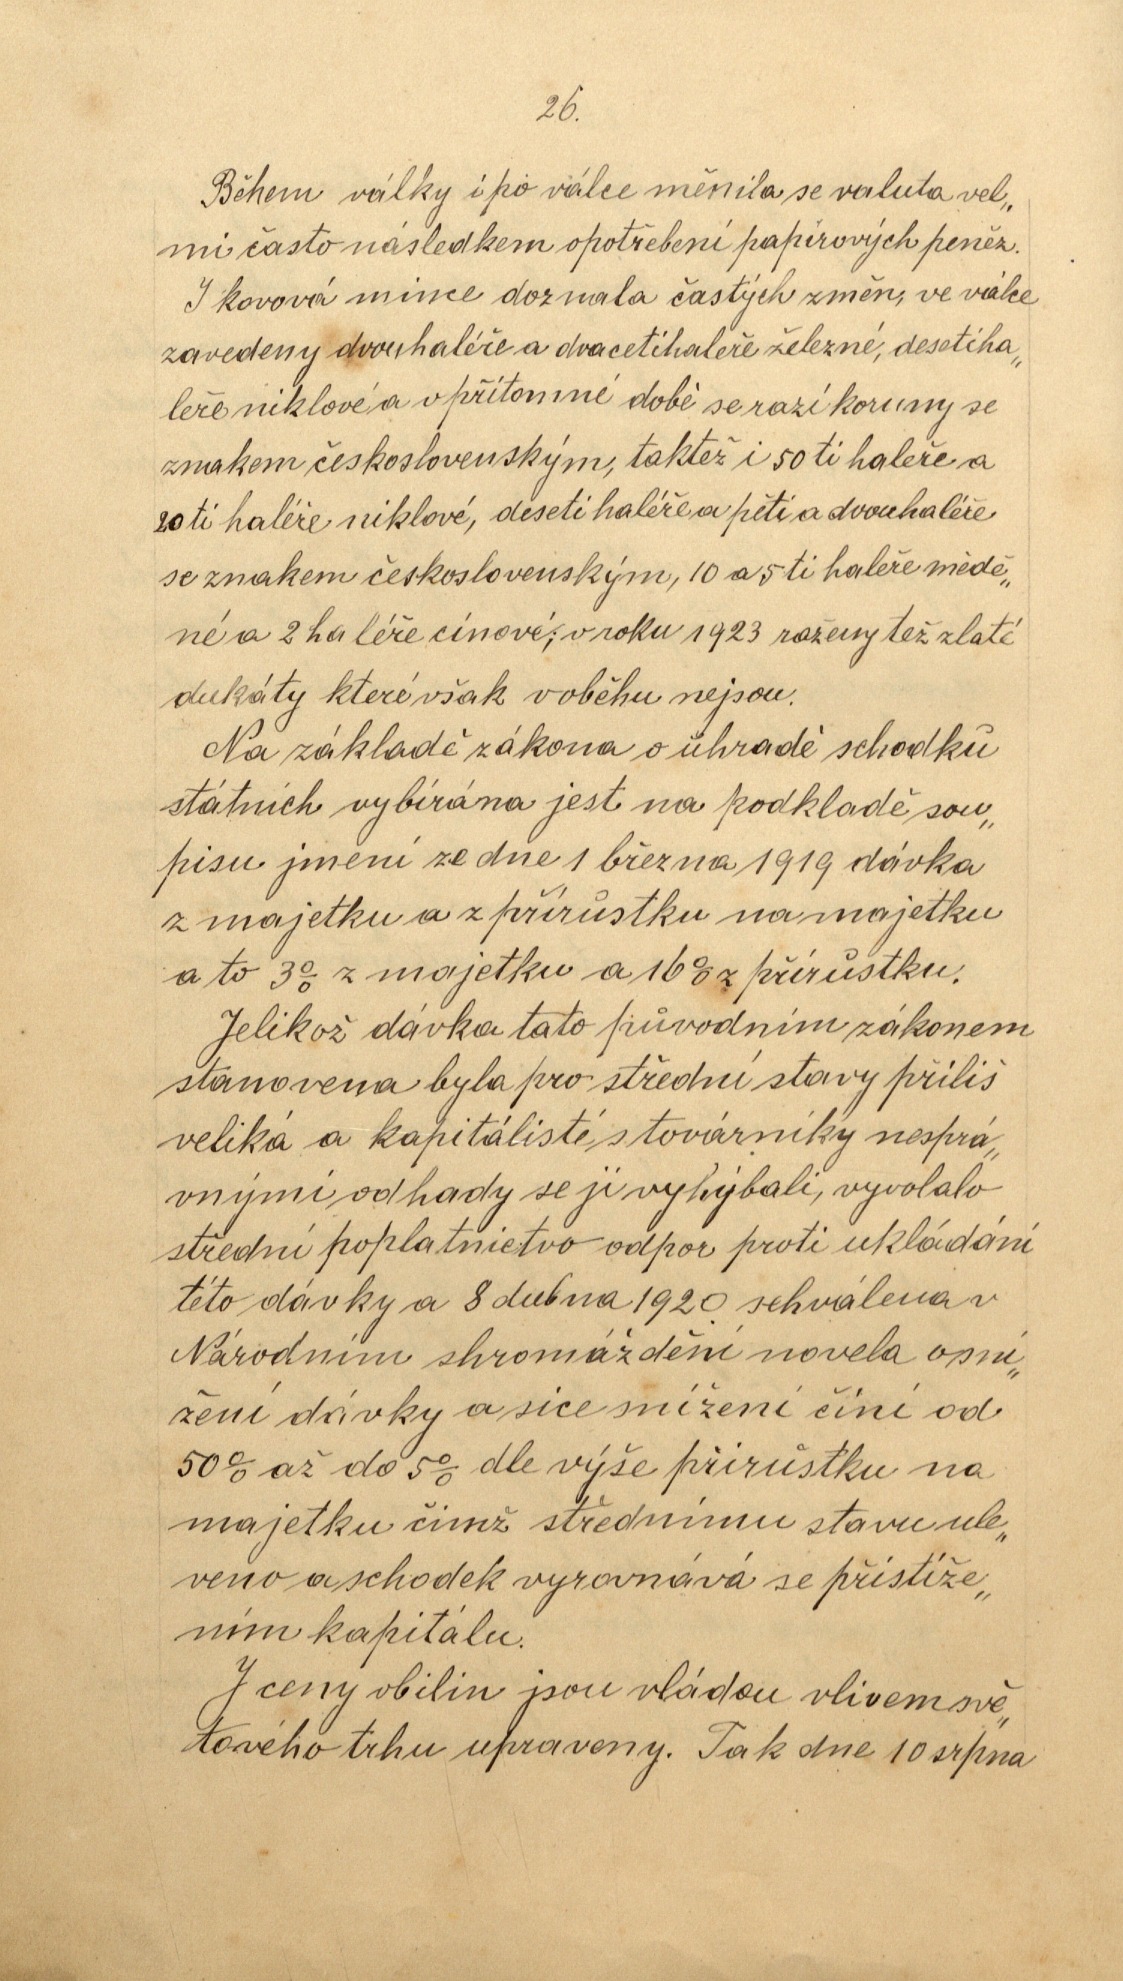 26.
Během války i po válce měnila se valuta vel„
mi často následkem opotřebení papírových peněz.
I kovová mince doznala častých změn, ve válce
zavedeny dvouhaléře a dvacetihaleře železné, desetiha„
leře niklové a v přítomné době se razí koruny se
znakem československým, taktež i 50 ti haleře a
20 ti haléře niklové, deseti haléře a pěti a dvouhaléře
se znakem československým, 10 a 5 ti haleře mědě„
né a 2 haléře cínové; v roku 1923 raženy též zlaté
dukáty které však v oběhu nejsou.
Na základě zákona o úhradě schodků
státních vybírána jest na podkladě sou„
pisu jmení ze dne 1 března 1919 dávka
z majetku a z přírůstku na majetku
a to 3% z majetku a 16% z přírůstku.
Jelikož dávka tato původním zákonem
stanovena byla pro střední stavy příliš
veliká a kapitálisté s továrníky nesprá„
vnými odhady se jí vyhýbali, vyvolalo
střední poplatnictvo odpor proti ukládání
této dávky a 8 dubna 1920 schválena v
Národním shromáždění novela o sní„
žení dávky a sice snížení činí od
50% až do 5% dle výše přírůstku na
majetku čímž střednímu stavu ule„
veno a schodek vyrovnává se přistíže„
ním kapitálu.
I ceny obilin jsou vládou vlivem svě„
tového trhu upraveny. Tak dne 10 srpna